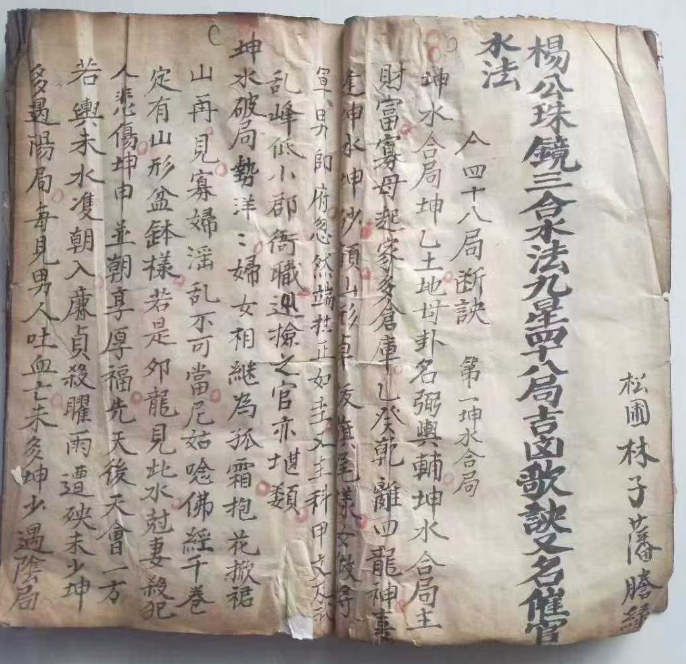 松圃林子藩謄錄
楊公珠鏡三合水法九星四十八局吉凶歌訣又名催官
水法
四十八局断訣 第一坤水合局
坤水合局坤乙土地母卦名弼輿輔坤水合局主
財富寡母起家多倉庫乙癸乾離四龍神
坤水坤砂
男 府忽然端 正如圭又主科甲
乱峰低小郡衙職巡撿之官亦堪類
坤水破局勢洋〻婦女相継為孤霜抱花掀裙
山再見寡婦滛乱不可當尼姑唸佛經千巻
定有山形盆鉢樣若是卯龍見此水尅妻殺犯
人悲傷坤申並朝享厚福先天後天會一方
若輿未水䨇朝入廉貞殺曜雨遭殃未少坤
多遇陽局每見男人吐血亡未多坤少遇陰局